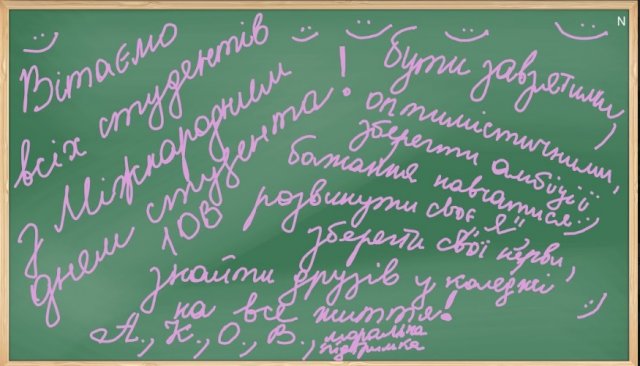 Вітаємо
всіх студентів
з Міжнародним
днем студента!
10В
бути завзятими,
оптимістичними,
зберегти амбіції
бажання навчатися
розвинути своє "Я"
зберегти свої нерви,
знайти друзів у коледжі
на все життя!
А., К., О., В.,
моральна
підтримка
N